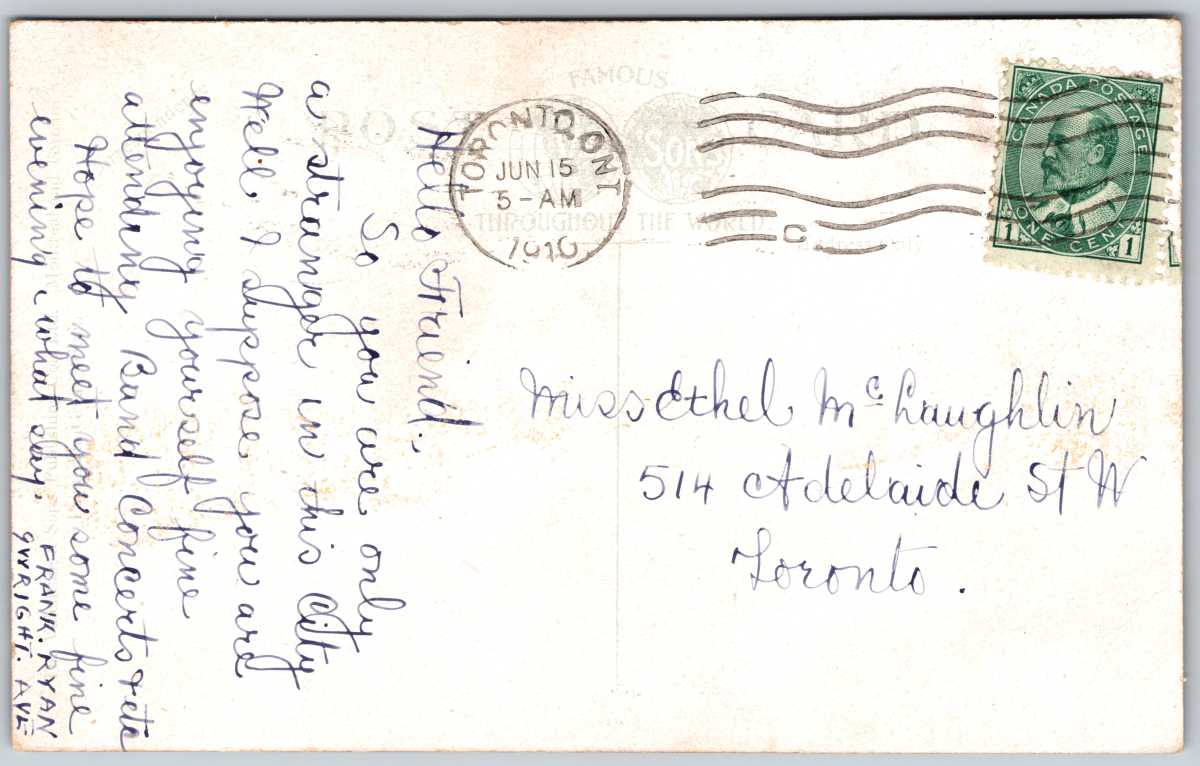 FAMOUS
POST CARD
SONS
THROUGHOUT THE WORLD
TORONTO, ONT
JUN 15
5-AM
1910
C
CANADA POSTAGE
ONE CENT
1 1
Hello Friend.,
So you are only
a stranger in this City
Well I suppose you are
enjoying yourself fine
attending Band Concerts + etc
Hope to meet you some fine
evening, what say.
FRANK. RYAN
9 WRIGHT. AVE
Miss Ethel McLaughlin
514 Adelaide St W
Toronto.